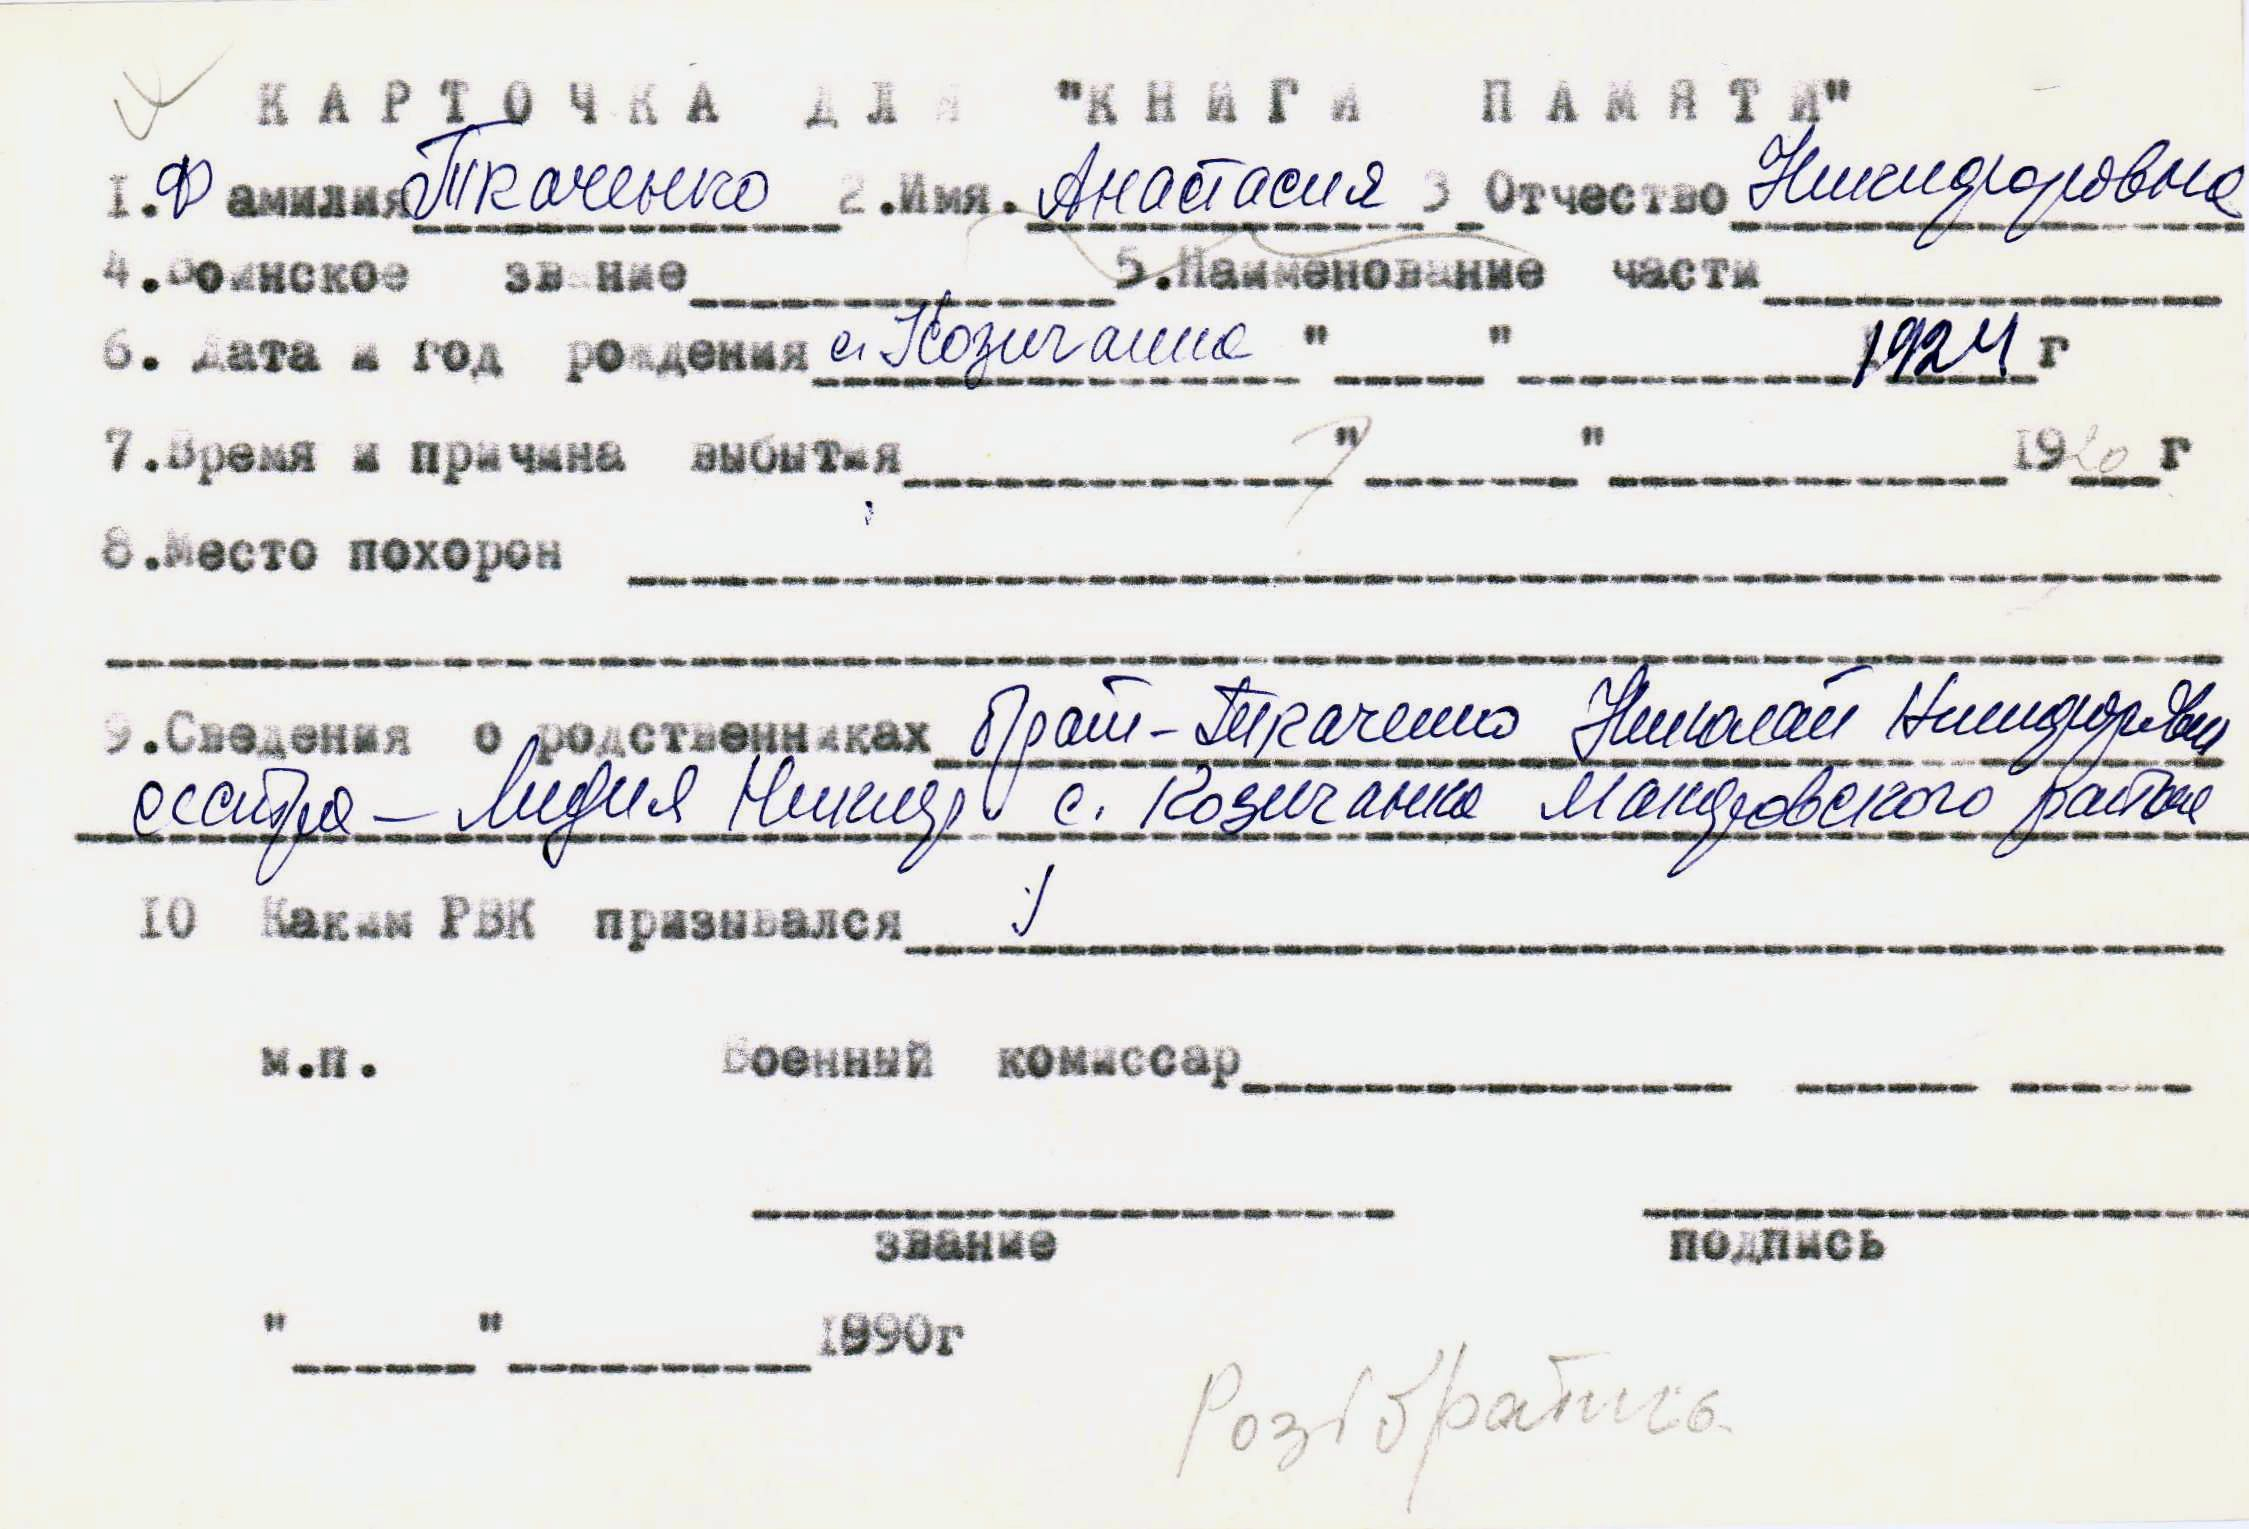 КАРТОЧКА ДЛЯ "КНИГИ ПАМЯТИ"
1.Фамилия Ткаченко 2.Имя. Анастасия 3 Отчество Никифоровна
4.Воинское звание 5.Наименование части
6. Дата и год рождения с. Козичанка " " 1924 г
7.Время и причина выбытия " " 19 г
8.Место похорон
9.Сведения о родственниках брат - Ткаченко Николай Никифорович
сестра - Лидия Никиф с. Козичанка Макаровского района
10 Каким РВК призывался
м.п. Военный комиссар
звание подпись
" " 1990г
Розібратись